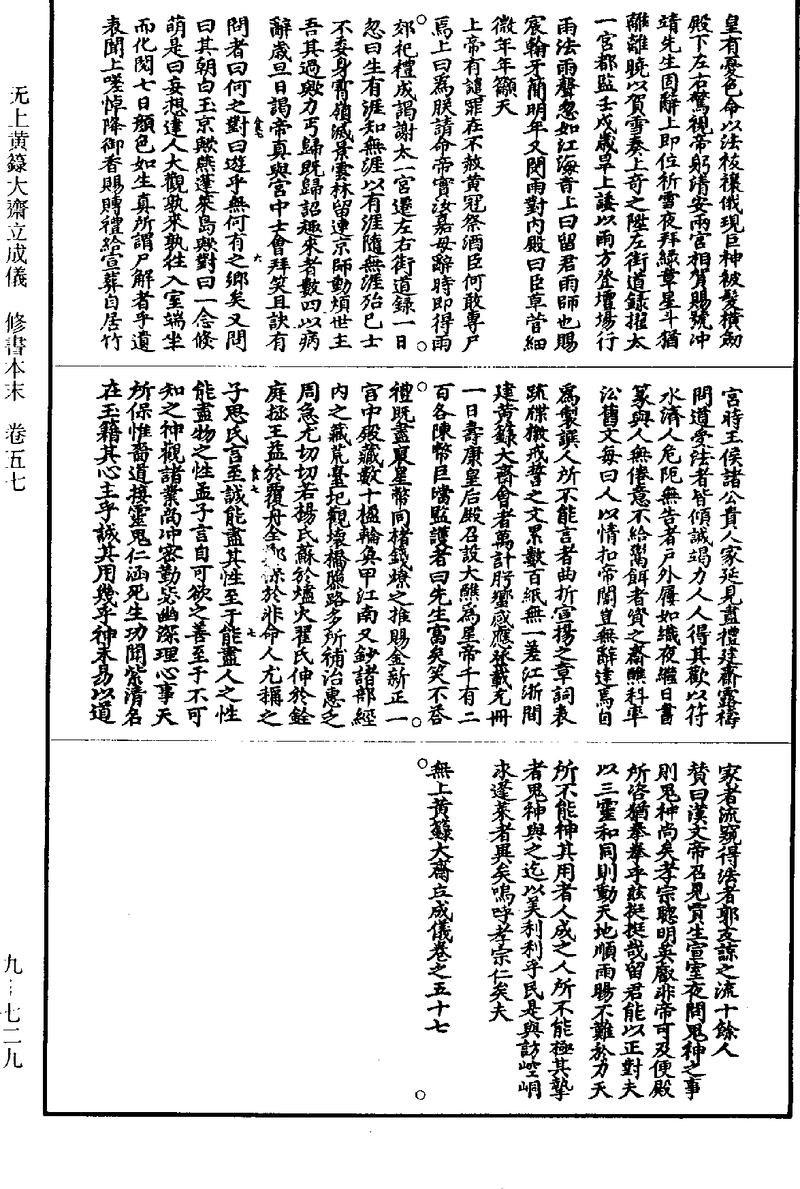 皇有憂色命以法棱禳俄現巨神被髮横劒
殿下左右驚視帝躬清安兩宮相賀賜號冲
靖先生固辭上即位祈雪夜拜綠章星斗猶
離離曉以賀雪奏上奇之陞左街道録擢太
一宮都監壬戌歲旱上諉以雨方登壇場行
雨法雨聲忽如江海音上曰留君雨師也賜
宸翰牙簡明年又閔雨對內殿曰臣草菅細
微年年籲天
上帝有譴罪在不赦黄冠祭酒臣何敢專尸
焉上曰爲朕請命帝實汝嘉毋辭時即得雨
郊祀禮成謁謝太一宮還左右街道録一日
忽曰生有涯知無涯以有涯隨無涯殆已士
不委身霄嶺滅景雲林留連京師動煩世主
吾其過歟力丐歸既歸詔趣來者數四以病
辭歲旦日謁帝真與宮中士會拜笑且訣有
問者曰何之對曰遊乎無何有之鄉矣又問
曰其朝白玉京歟燕蓬萊島歟對曰一念倏
萌是曰妄想達人大觀孰來孰往入室端坐
而化閱七日顏色如生真所謂尸解者乎遺
表聞上嗟悼降御香賜賻禮給宣葬自居竹
宮時王侯諸公貴人家延見盡禮建齋露禱
問道受法者皆傾誠竭力人人得其歡以符
水濟人危阨無告者戶外屨如織夜繼日書
篆與人無倦意不給鬻餌者資之齋醮科率
訟舊文每曰人以情扣帝閽豈無辭達焉自
爲製譔人所不能言者曲折宣揚之章詞表
疏牒檄戒誓之文累數百紙無一差江浙間
建黄籙大齋會者萬計肹蠁感應張載尤冊
一日壽康皇后殿召設大醮爲星帝千有二
百各陳幣巨璫監護者曰先生寓矣笑不荅
禮既盡裒星幣同楮錢燎之推賜金新正一
宮中殿藏數十楹輪奐甲江南又鈔諸部經
內之藏荒臺圮觀壞橋臲路多所補治惠之
周急尤切切若楊氏蘇於壚火翟氏伸於銓
庭拯王益於覆舟全鄭㻌於非命人尤稱之
子思氏言至誠能盡其性至于能盡人之性
能盡物之性孟子言自可欲之善至于不可
知之神觀諸業尚冲密勤宓幽深理心事天
所保惟嗇道接靈鬼仁涵死生功聞紫清名
在玉籍其心主乎誠其用幾乎神未易以道
家者流窺得法者郭友諒之流十餘人
贊曰漢文帝召見賈生宣室夜問鬼神之事
則鬼神尚矣孝宗聰明英叡非帝可及便殿
所咨猶拳拳乎兹挺挺哉留君能以正對夫
以三靈和同則動天地順雨暘不難於力天
所不能神其用者人成之人所不能極其摯
者鬼神與之迄以美利利乎民是與訪崆峒
求蓬萊者異矣嗚呼孝宗仁矣夫
無上黄籙大齋立成儀卷之五十七
无上黄籙大齋立成儀　修書本末　卷五七
九—七二九